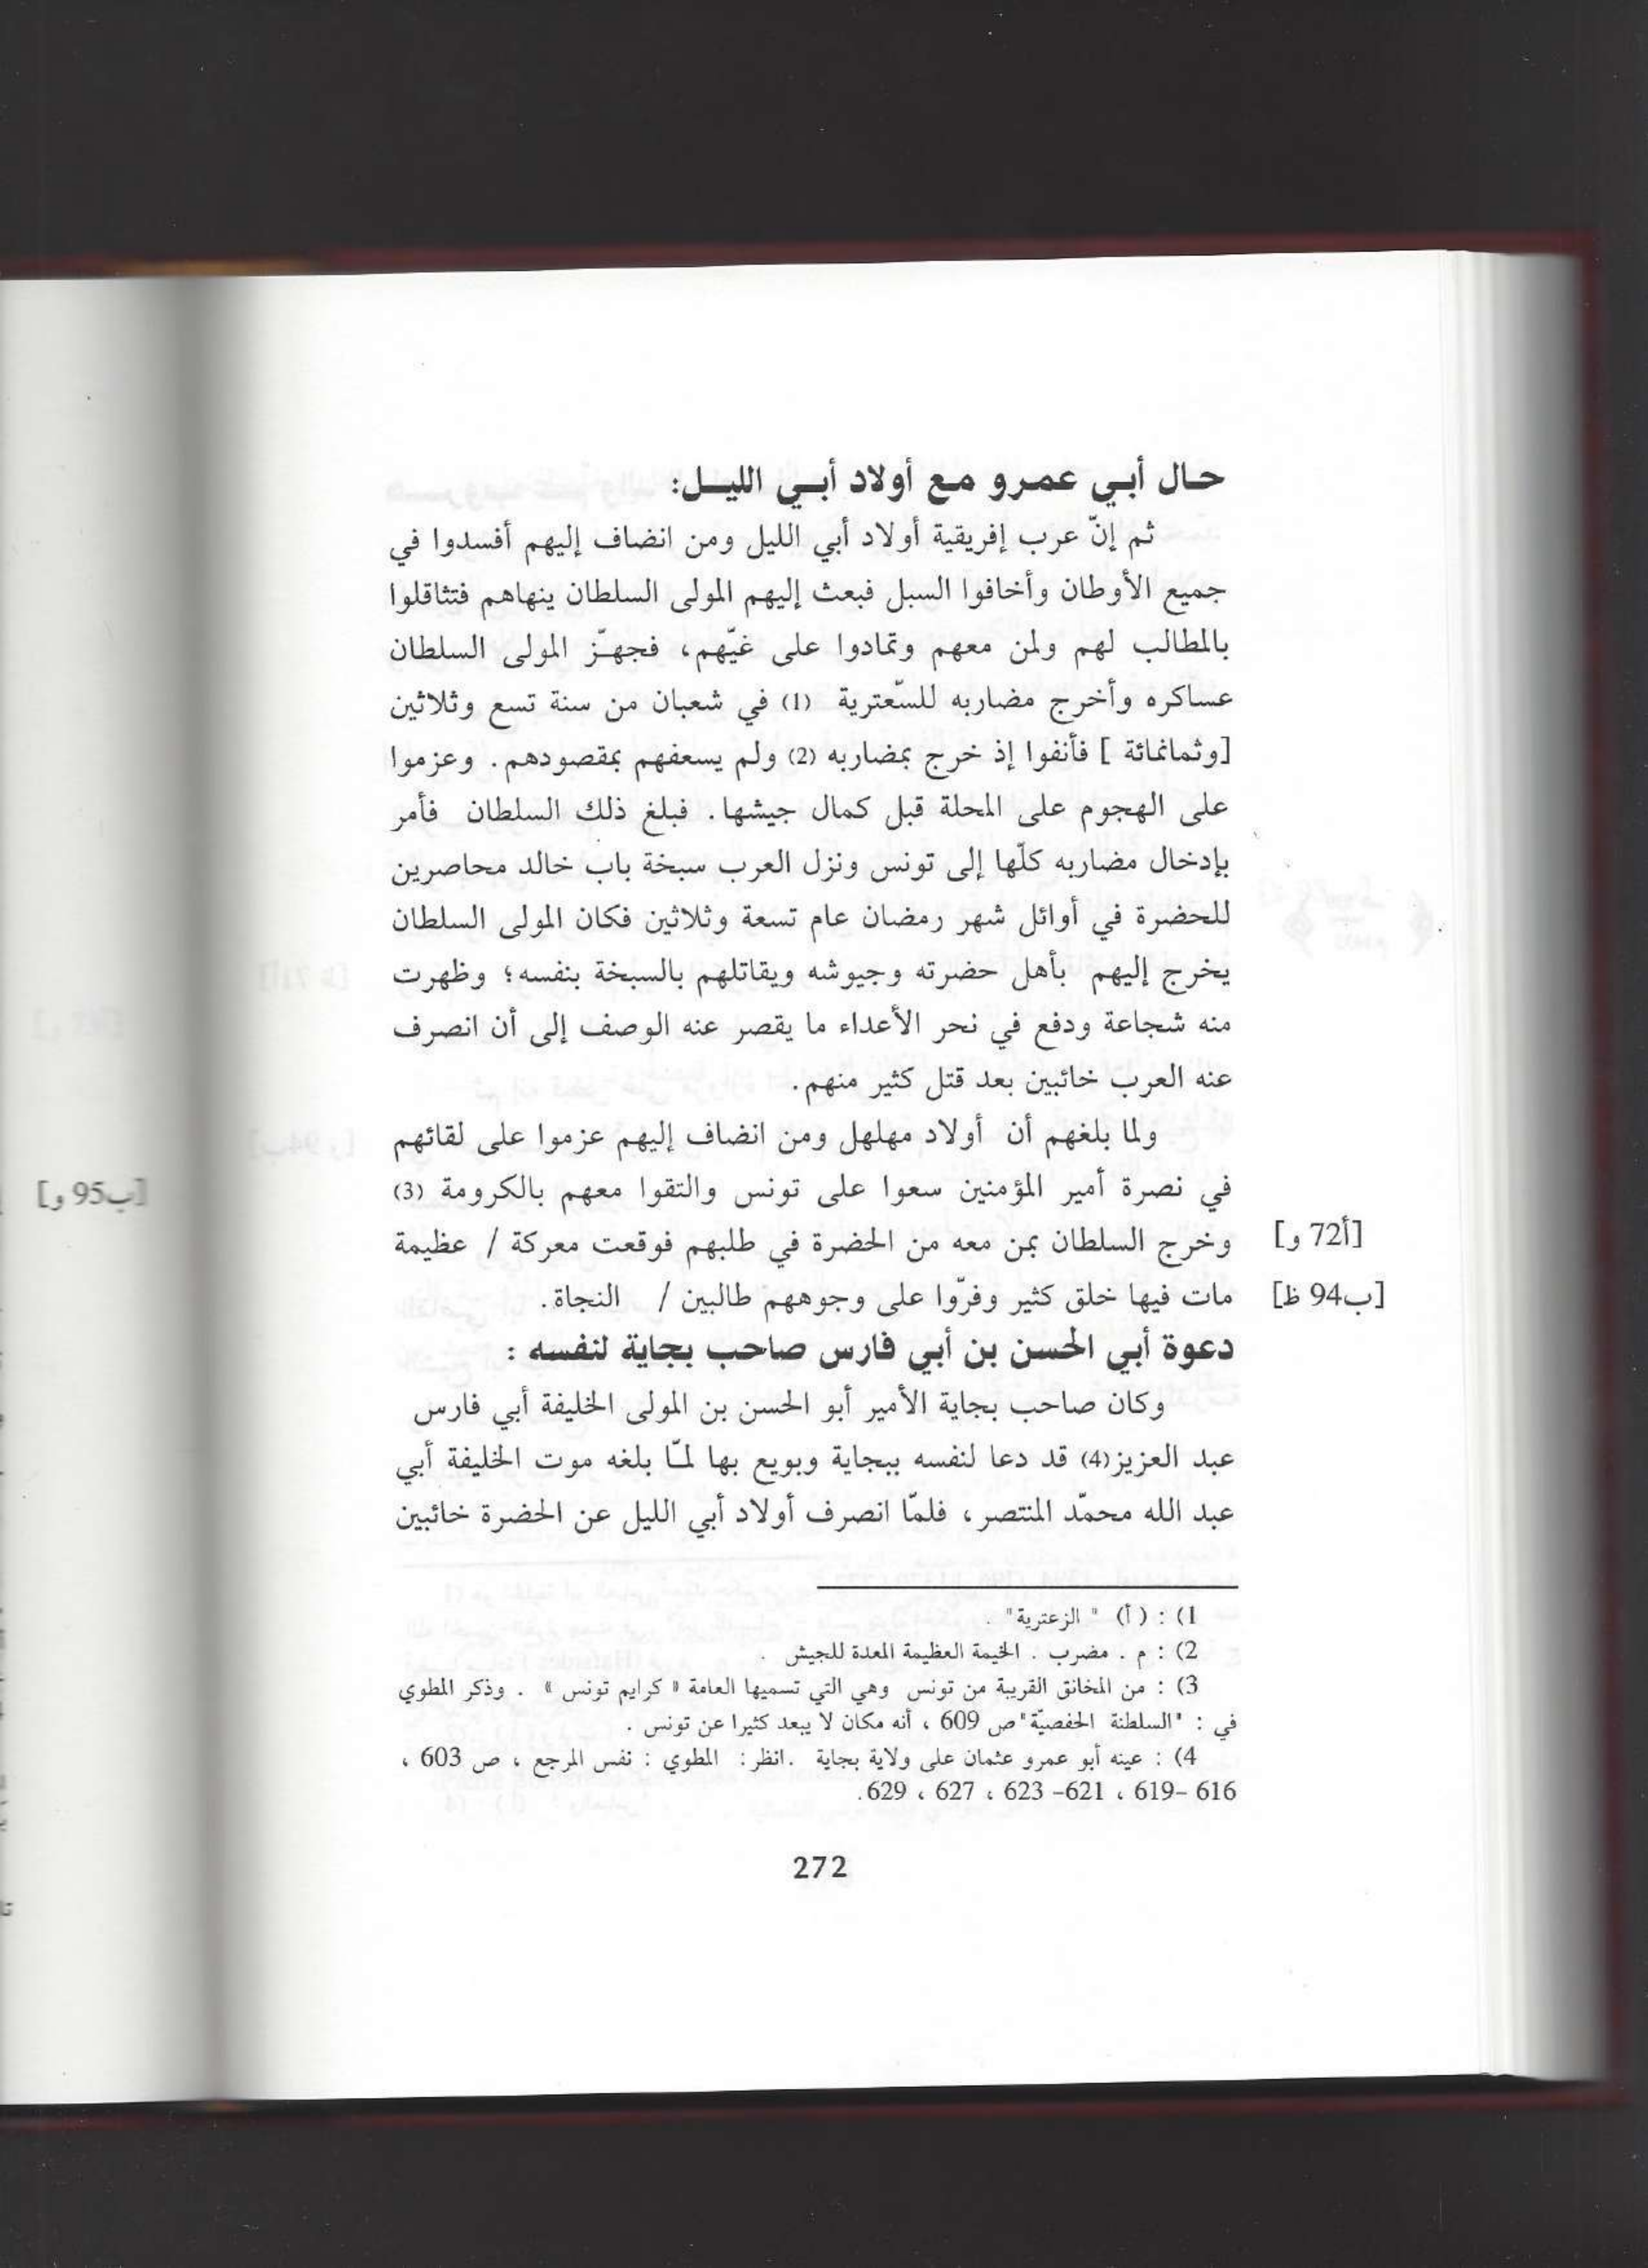 حال أبي عمرو مع أولاد أبي الليل:
ثم إنّ عرب إفريقية أولاد أبي الليل ومن انضاف إليهم أفسدوا في
جميع الأوطان وأخافوا السبل فبعث إليهم المولى السلطان ينهاهم فتثاقلوا
بالمطالب لهم ولمن معهم وتمادوا على غيّهم، فجهّز المولى السلطان
عساكره وأخرج مضاربه للسّعترية (1) في شعبان من سنة تسع وثلاثين
[وثمانمائة ] فأنفوا إذ خرج بمضاربه (2) ولم يسعفهم بمقصودهم. وعزموا
على الهجوم على المحلة قبل كمال جيشها. فبلغ ذلك السلطان فأمر
بإدخال مضاربه كلّها إلى تونس ونزل العرب سبخة باب خالد محاصرين
للحضرة في أوائل شهر رمضان عام تسعة وثلاثين فكان المولى السلطان
يخرج إليهم بأهل حضرته وجيوشه ويقاتلهم بالسبخة بنفسه؛ وظهرت
منه شجاعة ودفع في نحر الأعداء ما يقصر عنه الوصف إلى أن انصرف
عنه العرب خائبين بعد قتل كثير منهم.
ولما بلغهم أن أولاد مهلهل ومن انضاف إليهم عزموا على لقائهم
في نصرة أمير المؤمنين سعوا على تونس والتقوا معهم بالكرومة (3)
[أ72 و] وخرج السلطان بمن معه من الحضرة في طلبهم فوقعت معركة / عظيمة
[ب94 ظ] مات فيها خلق كثير وفرّوا على وجوههم طالبين / النجاة.
دعوة أبي الحسن بن أبي فارس صاحب بجاية لنفسه :
وكان صاحب بجاية الأمير أبو الحسن بن المولى الخليفة أبي فارس
عبد العزيز(4) قد دعا لنفسه ببجاية وبويع بها لمّا بلغه موت الخليفة أبي
عبد الله محمّد المنتصر، فلمّا انصرف أولاد أبي الليل عن الحضرة خائبين
1) : (أ) " الزعترية" .
2) : م . مضرب . الخيمة العظيمة المعدة للجيش .
3) : من المخانق القريبة من تونس وهي التي تسميها العامة « كرايم تونس » . وذكر المطوي
في : "السلطنة الحفصيّة"ص 609 ، أنه مكان لا يبعد كثيرا عن تونس .
4) : عينه أبو عمرو عثمان على ولاية بجاية .انظر: المطوي : نفس المرجع ، ص 603 ،
616 –619 ، 621– 623 ، 627 ، 629.
272
[ب95 و]